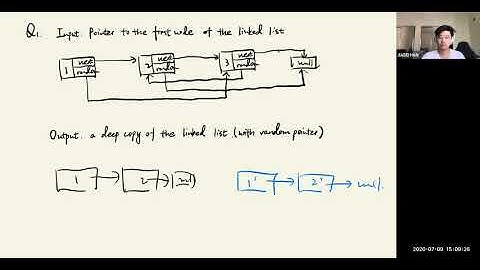 Q1. Input. Pointer to the first node of the linked list
1 next random 2 next random 3 next random null
Output. a deep copy of the linked list (with random pointer)
1 2 null 1' 2' null.
2020-07-09 15:09:26